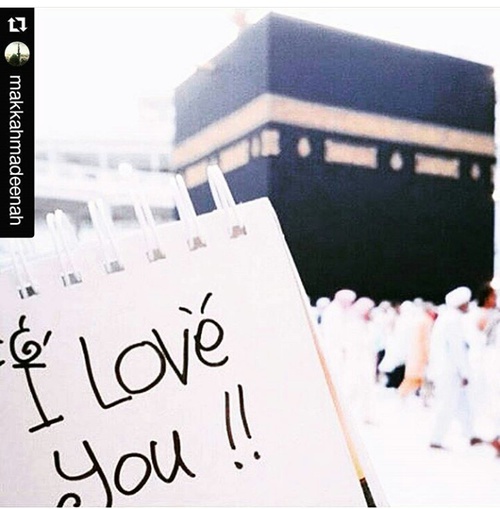 makkahmadeenah
I Love
you !!